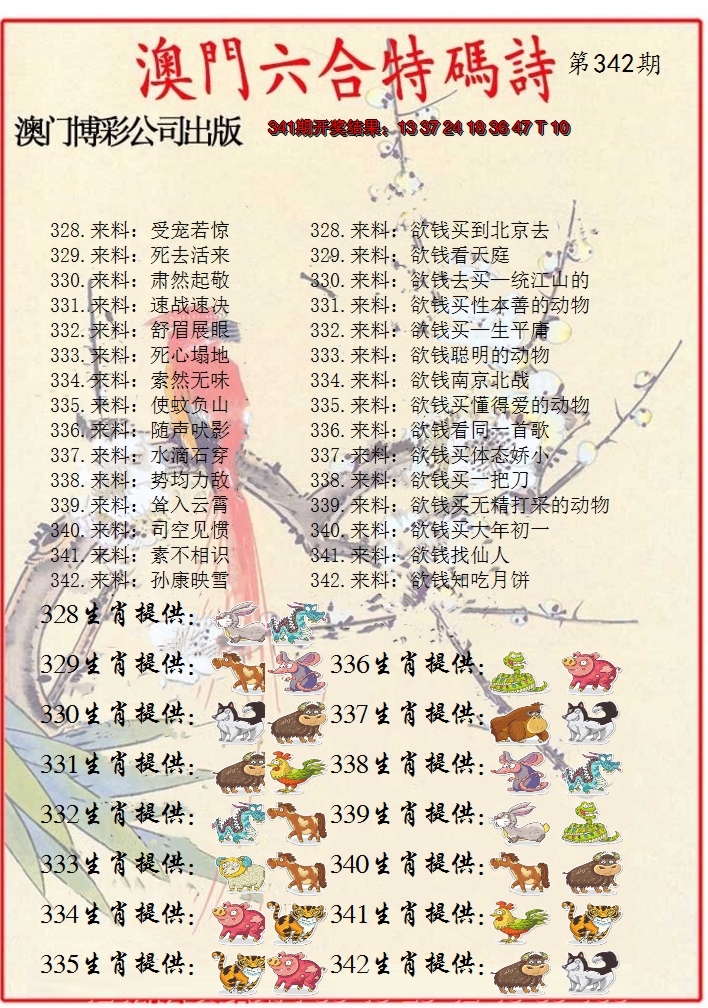 澳門六合特碼詩 第342期
澳门博彩公司出版 341期开奖结果：13 37 24 18 36 47 T 10
328.来料：受宠若惊 328.来料：欲钱买到北京去
329.来料：死去活来 329.来料：欲钱看天庭
330.来料：肃然起敬 330.来料：欲钱去买一统江山的
331.来料：速战速决 331.来料：欲钱买性本善的动物
332.来料：舒眉展眼 332.来料：欲钱买一生平庸
333.来料：死心塌地 333.来料：欲钱聪明的动物
334.来料：索然无味 334.来料：欲钱南京北战
335.来料：使蚊负山 335.来料：欲钱买懂得爱的动物
336.来料：随声吠影 336.来料：欲钱看同一首歌
337.来料：水滴石穿 337.来料：欲钱买体态娇小
338.来料：势均力敌 338.来料：欲钱买一把刀
339.来料：耸入云霄 339.来料：欲钱买无精打采的动物
340.来料：司空见惯 340.来料：欲钱买大年初一
341.来料：素不相识 341.来料：欲钱找仙人
342.来料：孙康映雪 342.来料：欲钱知吃月饼
328生肖提供：
329生肖提供： 336生肖提供：
330生肖提供： 337生肖提供：
331生肖提供： 338生肖提供：
332生肖提供： 339生肖提供：
333生肖提供： 340生肖提供：
334生肖提供： 341生肖提供：
335生肖提供： 342生肖提供：